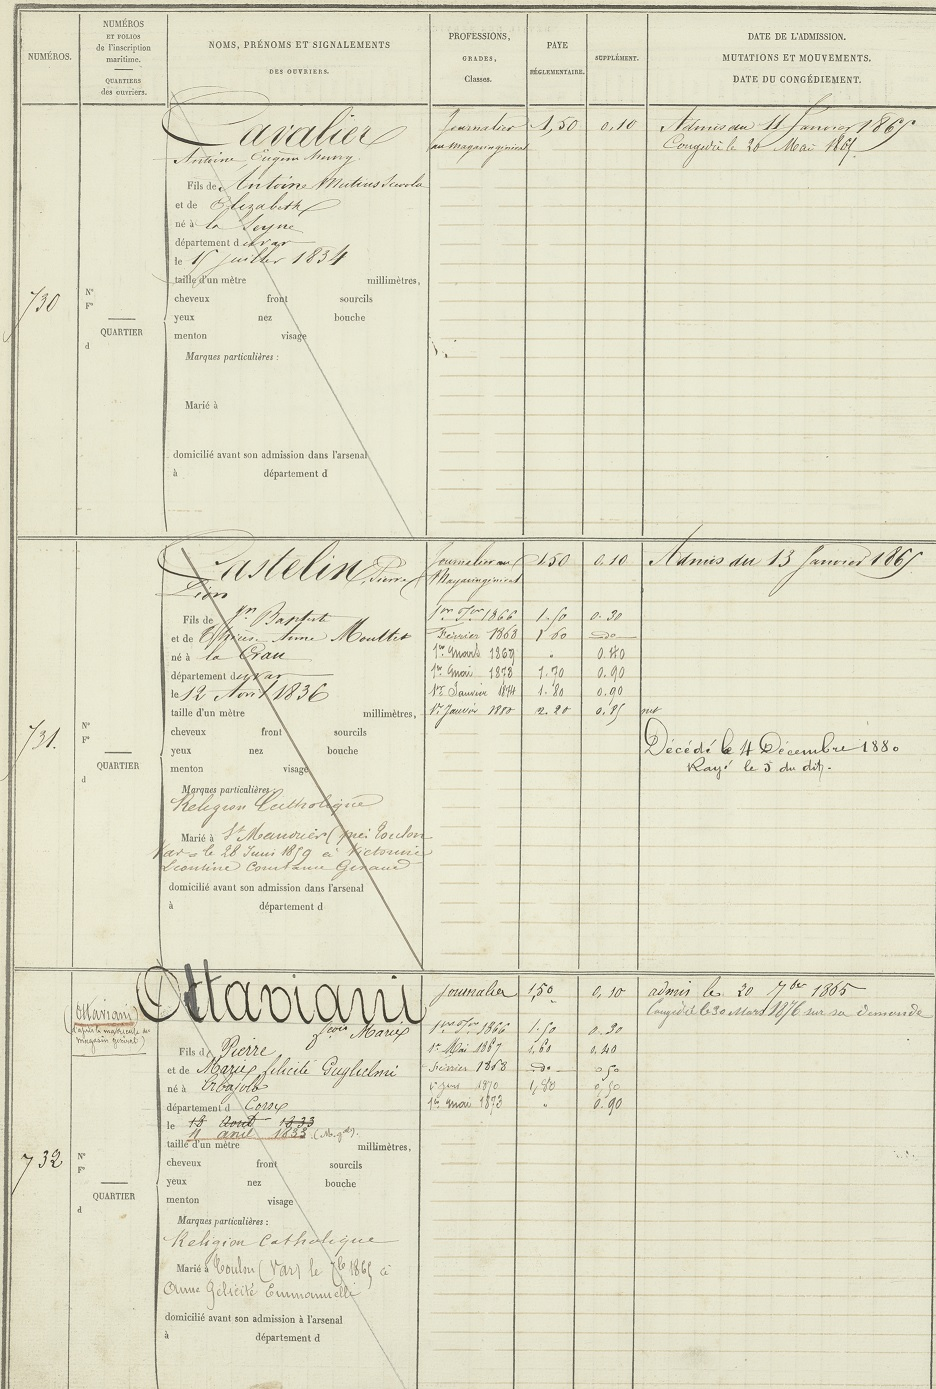 NUMÉROS.
NUMÉROS
ET FOLIOS
de l'inscription
maritime.
QUARTIERS
des ouvriers.
NOMS, PRÉNOMS ET SIGNALEMENTS
DES OUVRIERS.
PROFESSIONS,
GRADES,
Classes.
PAYE
RÉGLEMENTAIRE.
SUPPLÉMENT.
DATE DE L'ADMISSION.
MUTATIONS ET MOUVEMENTS.
DATE DU CONGÉDIEMENT.
730
Nº
Fº
QUARTIER
d
Cavalier
Antoine Eugène
Fils de Antoine Mutius Scevola
et de Elizabeth
né à la Seyne
département d u var
le 15 juillet 1834
taille d'un mètre millimètres,
cheveux front sourcils
yeux nez bouche
menton visage
Marques particulières :
Marié à
domicilié avant son admission dans l'arsenal
à département d
Journalier 1,50 0.10 Admis du 11 Janvier 1865
au magasin général Congédié le 20 Mai 1865.
731.
Nº
Fº
QUARTIER
d
Castelin, Pierre
Léon
Fils de Jn Baptist
et de Thérèse Anne Mouttet
né à la Crau
département d u var
le 12 Avril 1836
taille d'un mètre millimètres,
cheveux front sourcils
yeux nez bouche
menton visage
Marques particulières
Religion Catholique
Marié à St Mandrier (près Toulon
Var = le 28 Juin 1859 à Victorine
Léontine Constance Giraud
domicilié avant son admission dans l'arsenal
à département d
Journalier au 1.50 0.10 Admis du 13 Janvier 1865
Magasin général
1er Jer 1866 1.50 0.30
Février 1868 1.60 do
1er Mars 1869 " 0.40
1er Mai 1873 1.70 0.90
1er Janvier 1874 1.80 0.90
1er Janvier 1880 2.20 0.85 net
Décédé le 4 Décembre 1880
Rayé le 5 du dit.
732
Nº
Fº
QUARTIER
d
Ottaviani
(d'après la matricule du
magasin général)
Ottaviani
Marie
Fils d Pierre
et de Marie félicité Guglielmi
né à
département d Corse
le 18 Août 1833
11 avril 1833 (M. gal).
taille d'un mètre millimètres,
cheveux front sourcils
yeux nez bouche
menton visage
Marques particulières :
Religion Catholique
Marié à Toulon (Var) le 7bre 1865 à
Anne Félicité Emmanuelli
domicilié avant son admission à l'arsenal
à département d
Journalier 1,50 0,10 admis le 20 7bre 1865
Congédié le 30 Mars 1876 sur sa demande
1er Jer 1866 1.50 0.30
1er Mai 1867 1.60 0.40
Février 1868 do 0,50
1870 1,80 0,50
1er Mai 1873 " 0.90